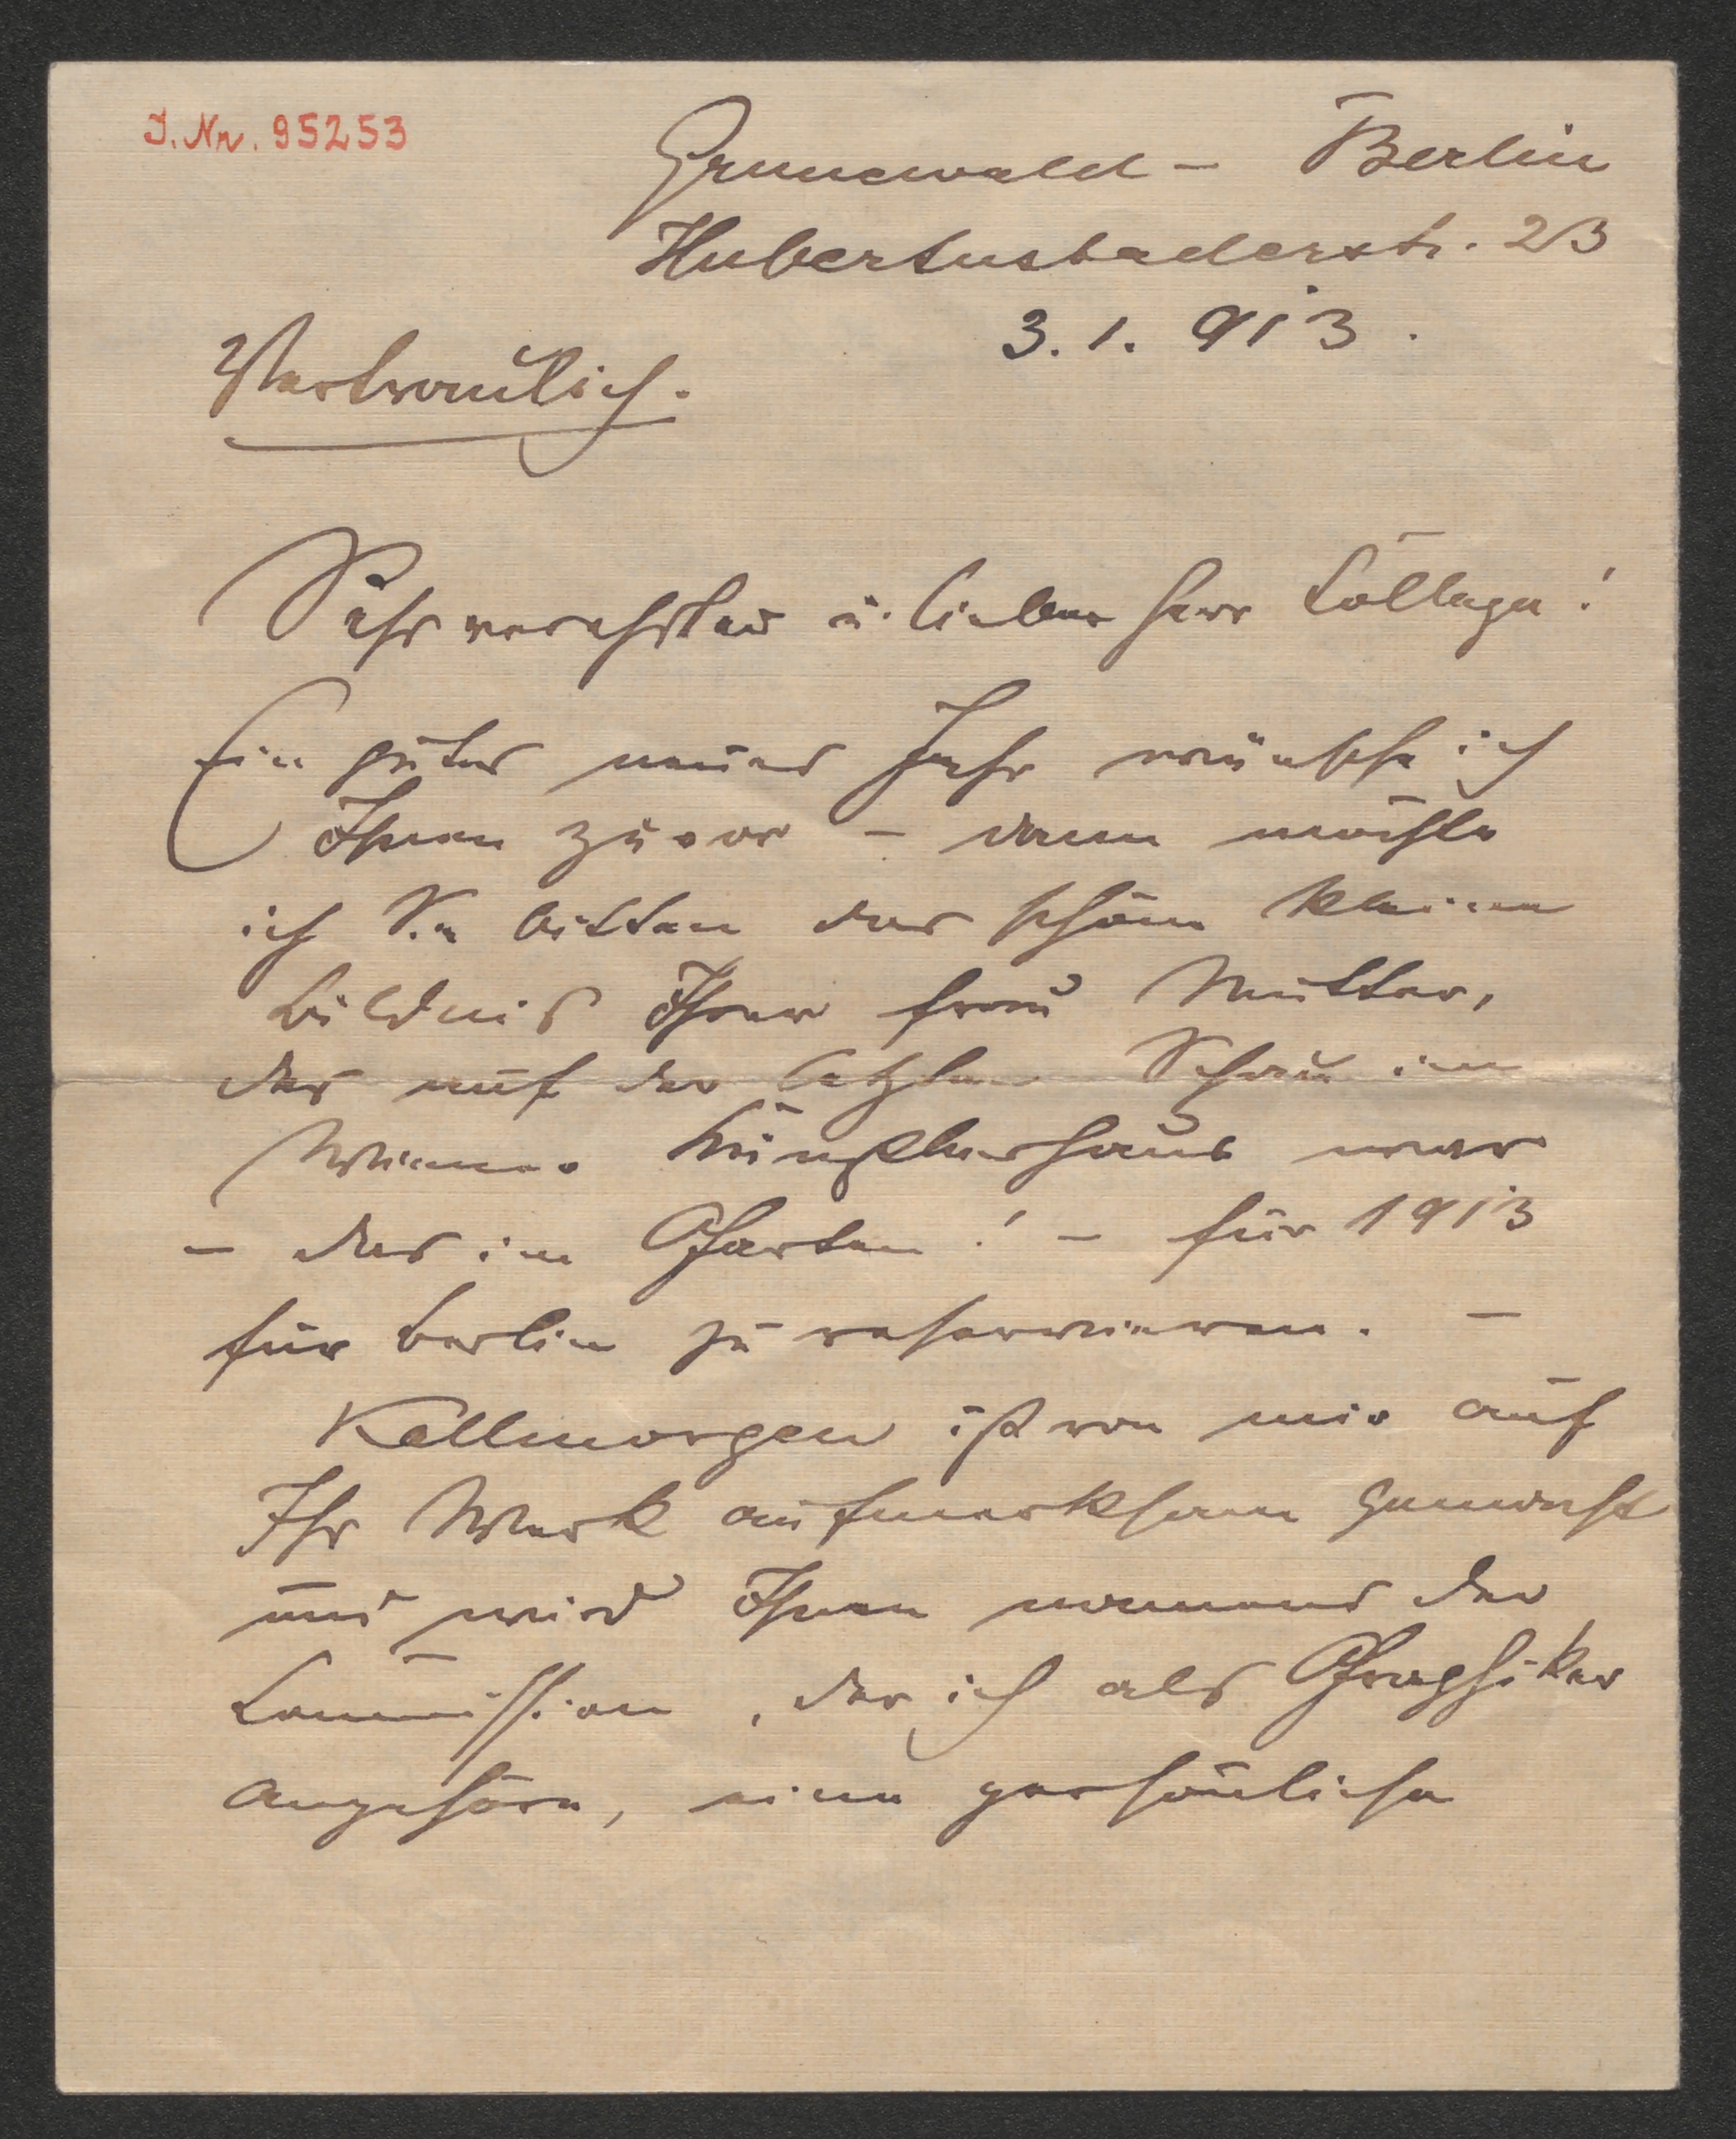 I. Nr. 95253
Grunewald - Berlin
Hubertusbaderstr. 23
3. 1. 913.
Vertraulich.
Sehr verehrter u. lieber Herr College!
Ein gutes neues Jahr wünsche ich
Ihnen zuvor – dann möchte
ich Sie bitten das schöne kleine
Bildniß Ihrer Frau Mutter,
das auf der letzten Schau im
Wiener Künstlerhaus war
– das im Garten! – für 1913
für Berlin zu reservieren. –
Kallmorgen ist von mir auf
Ihr Werk aufmerksam gemacht
und wird Ihnen namens der
Commission, der ich als Graphiker
angehöre, eine persönliche